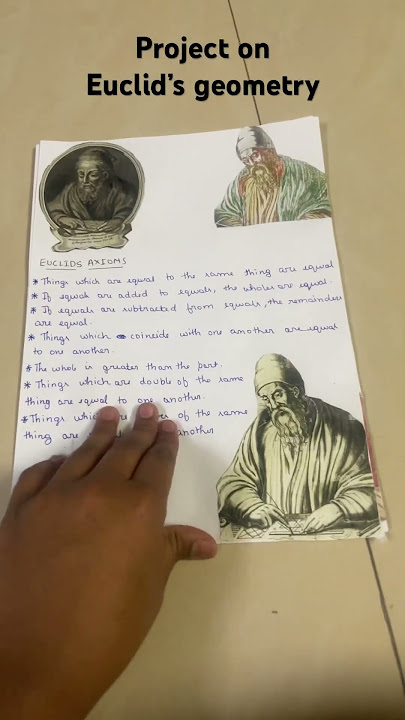 Project on
Euclid's geometry
EUCLIDS AXIOMS
* Things which are equal to the same thing are equal
* If equals are added to equals, the wholes are equal.
* If equals are subtracted from equals, the remainders
are equal.
* Things which coincide with one another are equal
to one another.
* The whole is greater than the part.
* Things which are double of the same
thing are equal to one another.
* Things which of the same
thing are another